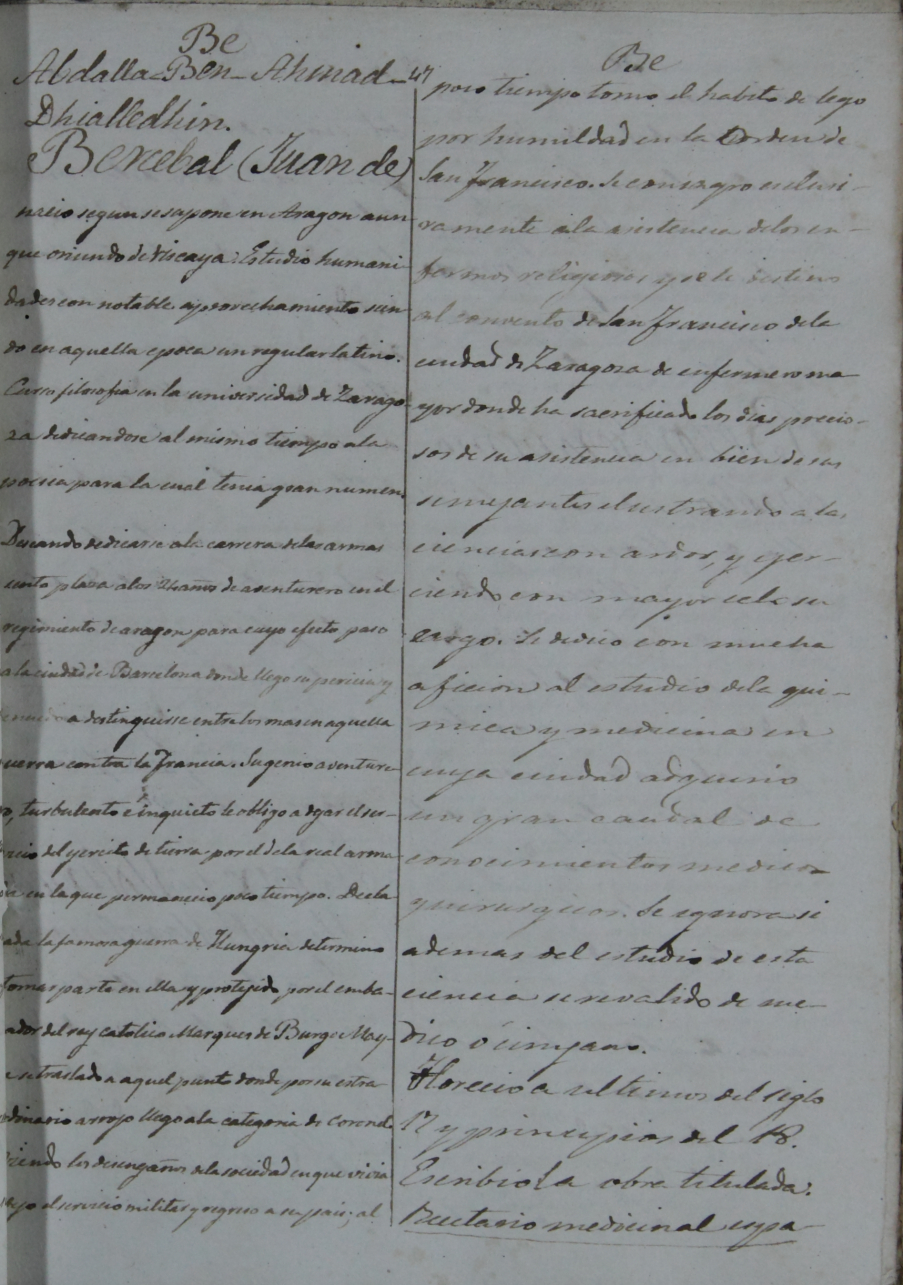 Be
Abdalla-Ben-Ahmad-
Dhialledhin.
Bercebal (Juan de)
nacio segun se supone en Aragon aun
que oriundo de Viscaya: Estudio humani
dades con notable aprovechamiento sien
do en aquella epoca un regular latino.
Curso filosofia en la universidad de Zarago
za dedicandose al mismo tiempo a la
poesia para la cual tenia gran numen.
Deseando dedicarse a la carrera de las armas
sento plaza a los 24 años de aventurero en el
regimiento de aragon para cuyo efecto paso
a la ciudad de Barcelona donde llego su pericia y
denuedo a distinguirse entre los mas en aquella
guerra contra la Francia. Su genio aventure
ro, turbulento é inquieto le obligo a dejar el ser-
vicio del ejercito de tierra por el de la real arma
da en la que permanecio poco tiempo. Decla
rada la famosa guerra de Hungria determino
tomar parte en ella y protejido por el emba-
jador del rey catolico Marques de Burgo May-
ne se traslado a aquel punto donde por su estra
ordinario arrojo llego a la categoria de coronel
Viendo los desengaños de la sociedad en que vivia
dejo el servicio militar y regreso a su pais; al
47
Be
poco tiempo tomo el habito de lego
por humildad en la Orden de
San Francisco. Se consagro esclusi-
vamente a la asistencia de los en-
fermos religiosos y se le destino
al convento de San Francisco de la
ciudad de Zaragoza de enfermero ma
yor donde ha sacrificado los dias precio-
sos de su asistencia en bien de sus
semejantes ilustrando a las
ciencias con ardor, y ejer-
ciendo con mayor celo su
cargo. Se dedico con mucha
aficion al estudio de la qui-
mica y medicina en
cuya ciudad adquirio
un gran caudal de
conocimientos medico
quirurgicos. Se ignora si
ademas del estudio de esta
ciencia se revalido de me-
dico ó cirujano.
Florecio a ultimos del siglo
17 y principios del 18.
Escribio la obra titulada:
Recetario medicinal espa